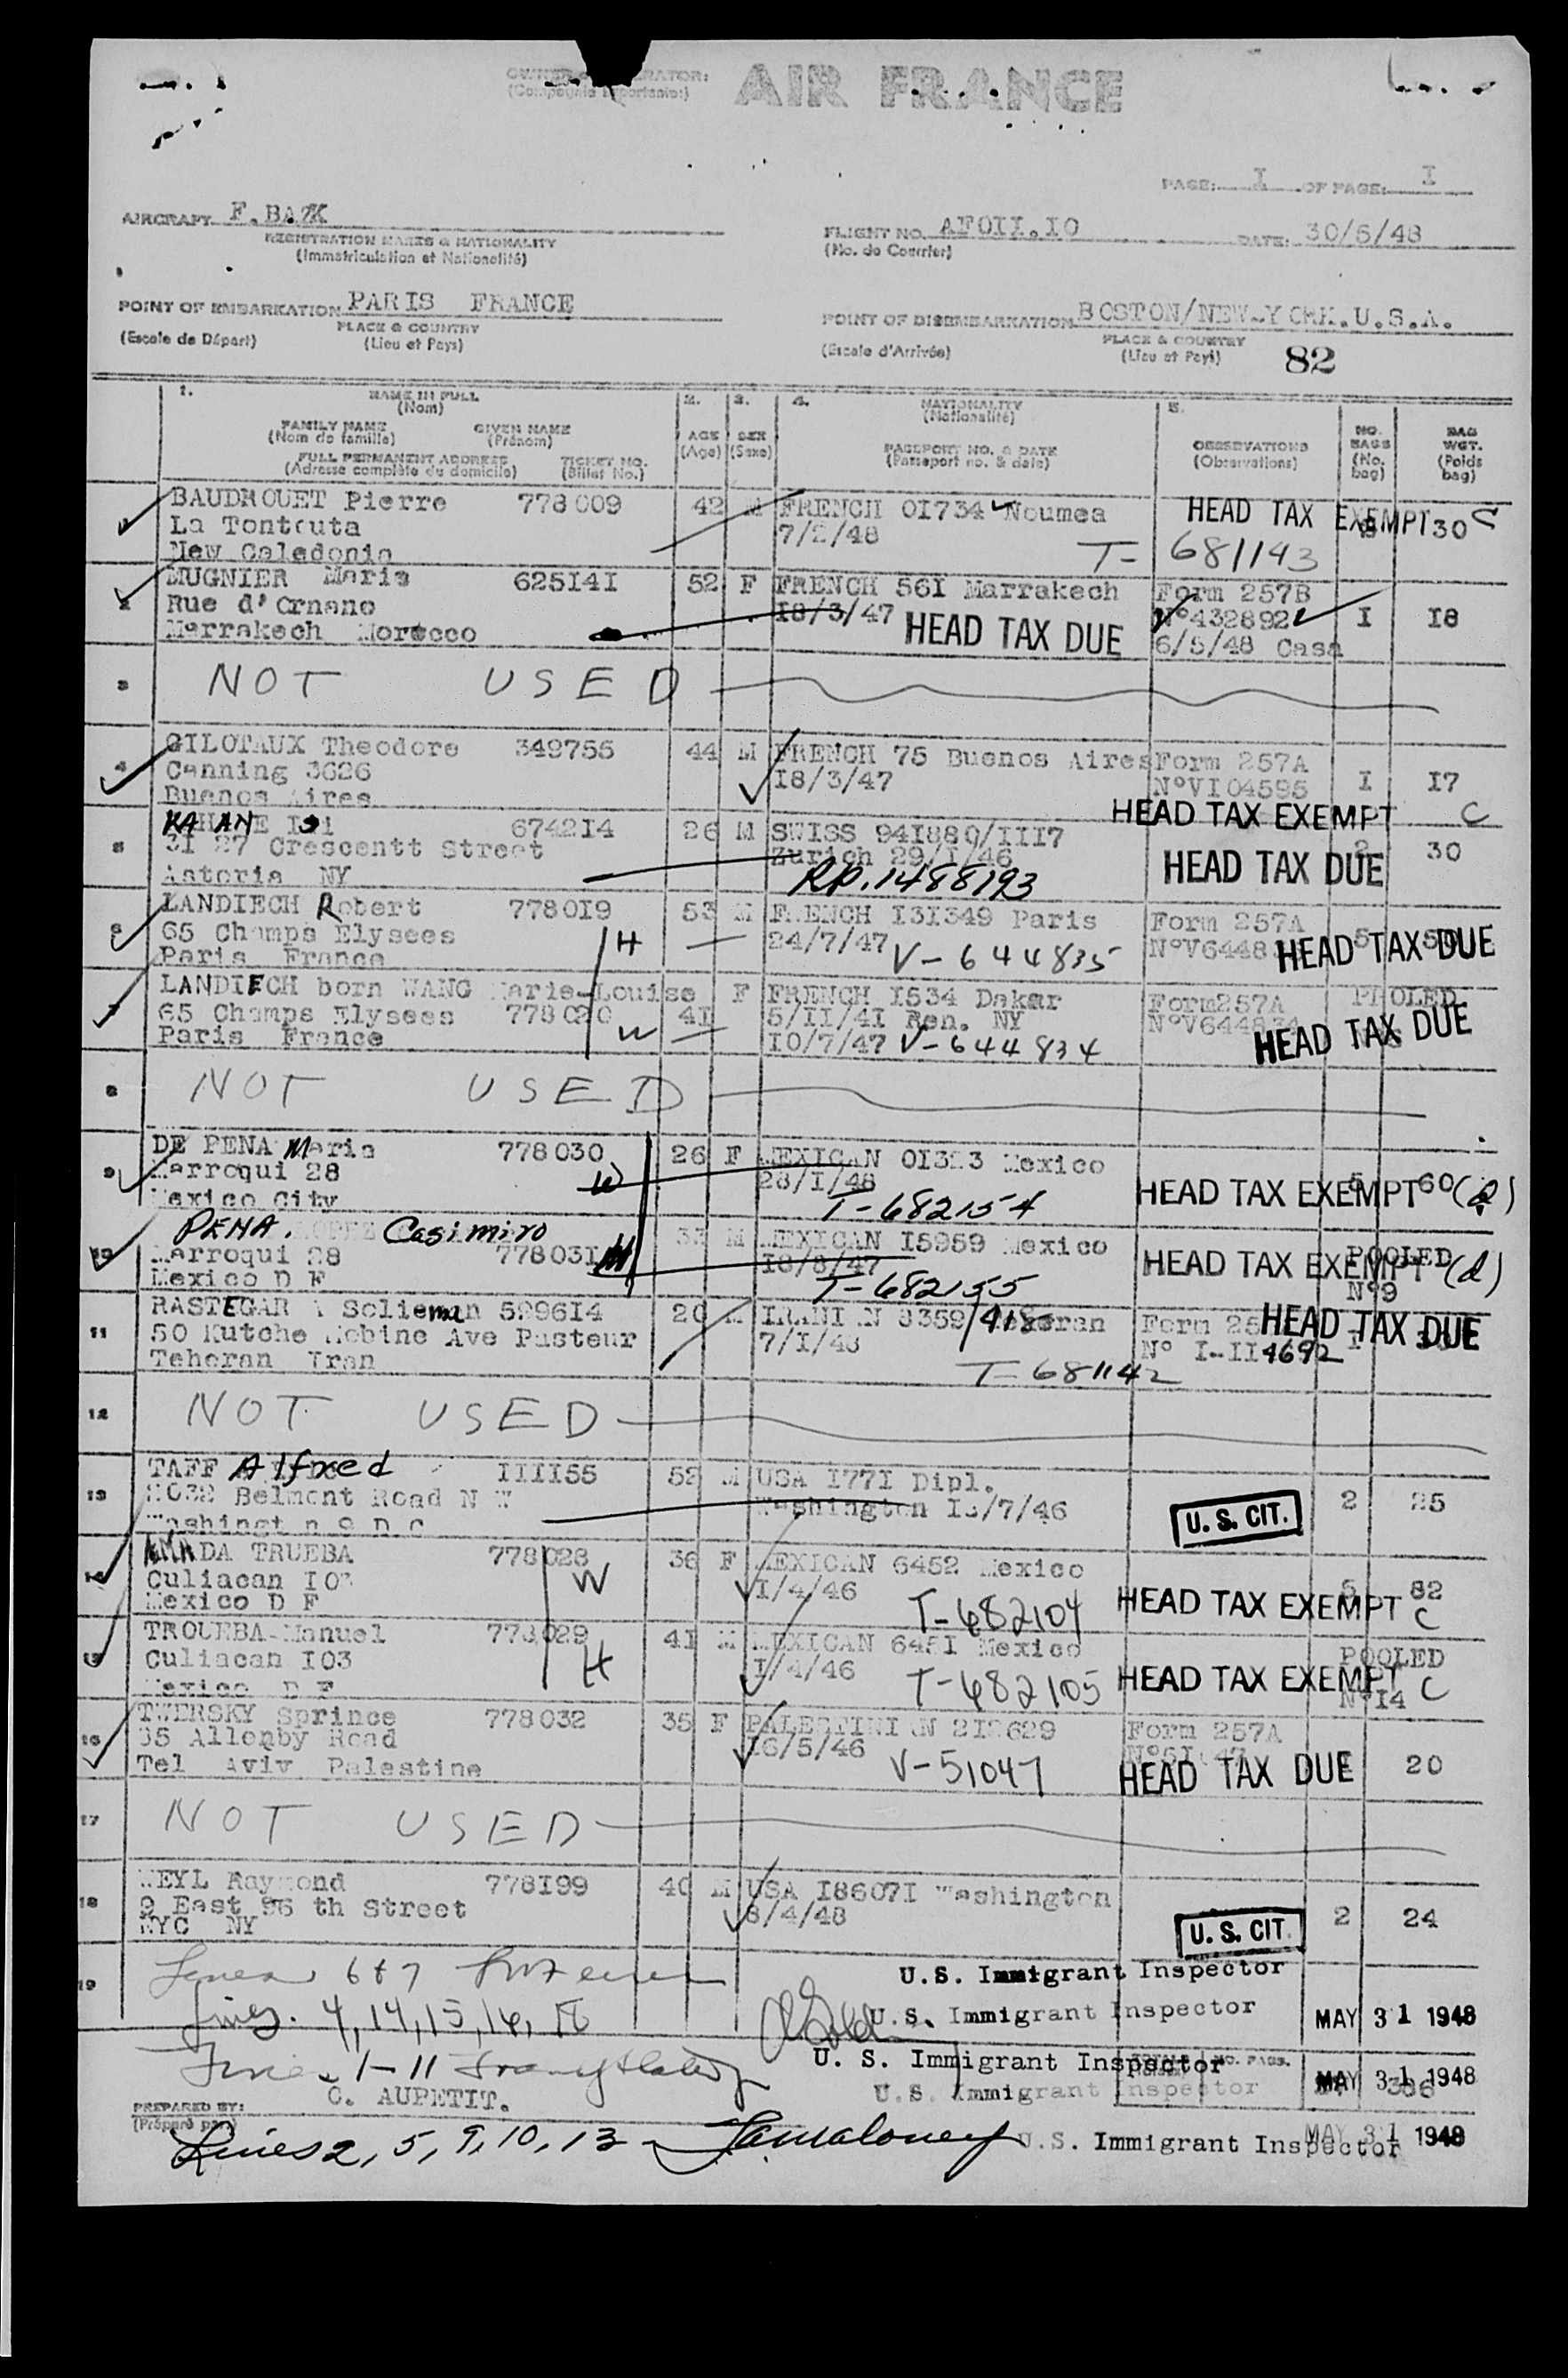 AIR FRANCE
PAGE: I OF PAGE: I
AIRCRAFT F.BAZK
REGISTRATION MARKS & NATIONALITY
(Immatriculation et Nationalité)
FLIGHT NO. AFOII.IO
(No. de Courrier)
DATE: 30/5/48
POINT OF EMBARKATION PARIS FRANCE
(Escale de Départ)
PLACE & COUNTRY
(Lieu et Pays)
POINT OF DISEMBARKATION BOSTON/NEW-YORK.U.S.A.
(Escale d'Arrivée)
PLACE & COUNTRY
(Lieu et Pays)
82
1. NAME IN FULL
(Nom)
FAMILY NAME GIVEN NAME
(Nom de famille) (Prénom)
FULL PERMANENT ADDRESS TICKET NO.
(Adresse complète du domicile) (Billet No.)
2. AGE
(Age)
3. SEX
(Sexe)
4. NATIONALITY
(Nationalité)
PASSPORT NO. & DATE
(Passeport no. & date)
5. OBSERVATIONS
(Observations)
NO. BAGS
(No. bag)
BAG WGT.
(Poids bag)
1 BAUDROUET Pierre 778009 42 M FRENCH OI734 Noumea HEAD TAX EXEMPT 30 C
La Tontouta 7/2/48 T- 681143
New Caledonia
2 MUGNIER Maria 625I4I 52 F FRENCH 56I Marrakech Form 257B
Rue d'Ornano I8/3/47 HEAD TAX DUE N°432892 I I8
Marrakech Morocco 6/5/48 Casa
3 NOT USED
4 GILOTAUX Theodore 349755 44 M FRENCH 75 Buenos Aires Form 257A
Canning 3626 I8/3/47 N°VI04595 I I7
Buenos Aires HEAD TAX EXEMPT C
5 KAHANE 6742I4 26 M SWISS 94I880/III7
3I 27 Crescentt Street Zurich 29/I/46 HEAD TAX DUE 30
Astoria NY RP.1488193
6 LANDIECH Robert 778OI9 53 M FRENCH I3I349 Paris Form 257A
65 Champs Elysees H 24/7/47 V-644835 HEAD TAX DUE
Paris France
7 LANDIECH born WANG Marie-Louise F FRENCH I534 Dakar Form257A POOLED
65 Champs Elysees 778020 4I 5/II/4I Ren. NY N°V644834
Paris France W IO/7/47 V-644834 HEAD TAX DUE
8 NOT USED
9 DE PENA Maria 778030 26 F MEXICAN OI323 Mexico
Marroqui 28 W 28/I/48 HEAD TAX EXEMPT 60
Mexico City T-682154
10 PENA. Casimiro
Marroqui 28 77803I 33 M MEXICAN I5959 Mexico HEAD TAX EXEMPT (d) POOLED
Mexico D F I8/8/47 T-682155 N°9
11 RASTEGAR Solieman 5996I4 20 M IRANIAN 8359/ Teheran HEAD TAX DUE
50 Kutche Mobine Ave Pasteur 7/I/48 N° I-II4692
Teheran Iran T-681142
12 NOT USED
13 TAFF Alfred IIII55 52 M USA I77I Dipl.
Belmont Road N W Washington U.S. CIT. 2 25
14 AMADA TRUEBA 778028 36 F MEXICAN 6452 Mexico
Culiacan I03 W I/4/46 HEAD TAX EXEMPT 82
Mexico D F T-682104 C
15 TROUEBA-Manuel 778029 4I M MEXICAN 645I Mexico POOLED
Culiacan I03 H I/4/46 T-682105 HEAD TAX EXEMPT C
Mexico D F N°I4
16 TWERSKY Sprince 778032 35 F PALESTINIAN Form 257A
35 Allenby Road I6/5/46
Tel Aviv Palestine V-51047 HEAD TAX DUE 20
17 NOT USED
18 WEYL Raymond 778I99 40 M USA I8607I Washington
9 East 96 th Street 8/4/48 U.S. CIT. 2 24
NYC NY
19 Lines 6 & 7 U.S. Immigrant Inspector
Lines. 4,14,15,16,18 U.S. Immigrant Inspector MAY 31 1948
1-11 U. S. Immigrant Inspector MAY 31 1948
U.S. Immigrant Inspector
PREPARED BY: C. AUPETIT.
(Préparé par)
Lines 2, 5, 9, 10, 13 - U.S. Immigrant Inspector MAY 31 1948